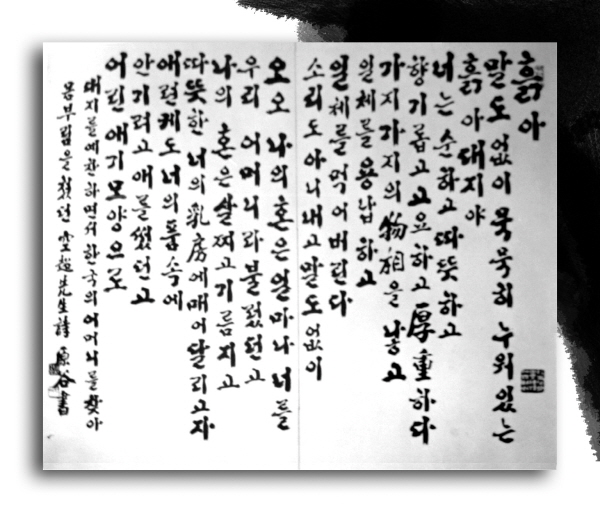 흙아
말도 없이 묵묵히 누워있는
흙아 대지야
너는 순하고 따뜻하고
향기롭고 고요하고 厚重하다
가지가지의 物相을 낳고
일체를 용납하고
일체를 먹어버린다
소리도 아니내고 말도 없이
오오 나의 혼은 얼마나 너를
우리 어머니라 불렀던고
나의 혼은 살찌고 기름지고
따뜻한 너의 乳房에 매어달리고자
애련케도 너의 품속에
안기려고 애를 썼던고
어린애기 모양으로
대지를 예찬하면서 한국의 어머니를 찾아
몸부림을 쳤던 空超先生詩 原谷書